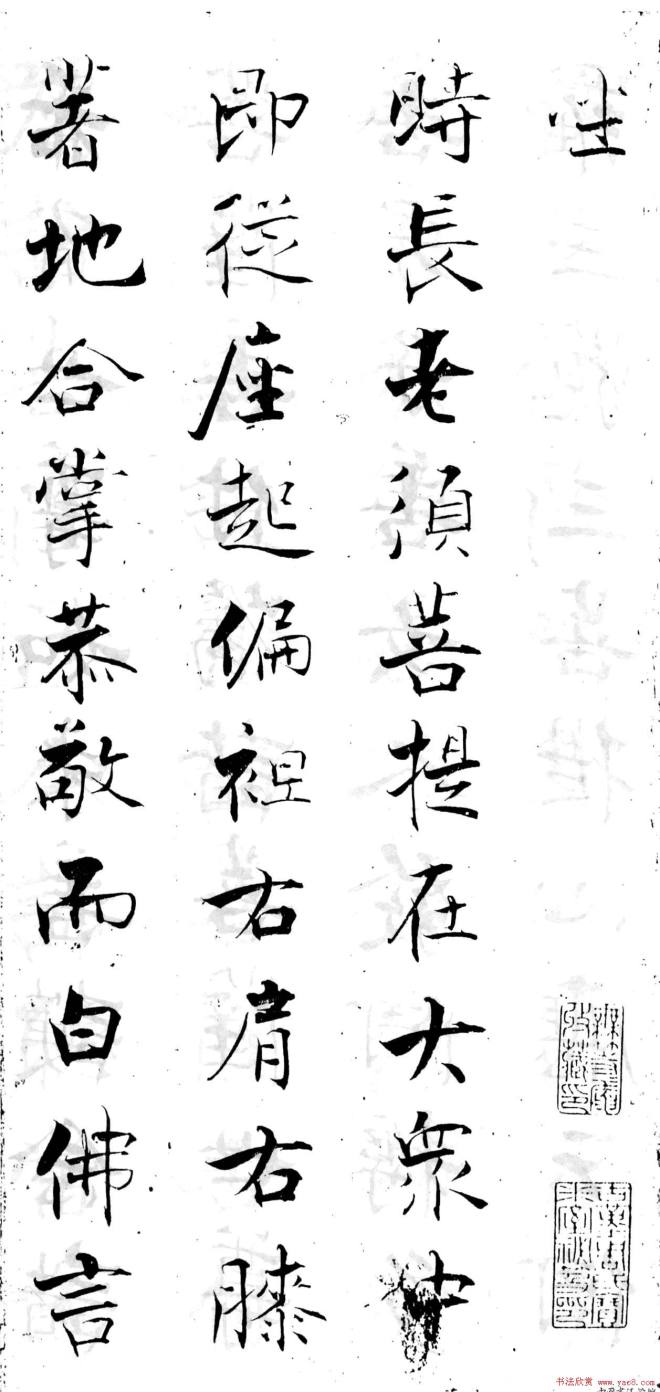 坐
時長老須菩提在大衆中
即從座起偏袒右肩右膝
著地合掌恭敬而白佛言
书法欣赏
www.yac8.com